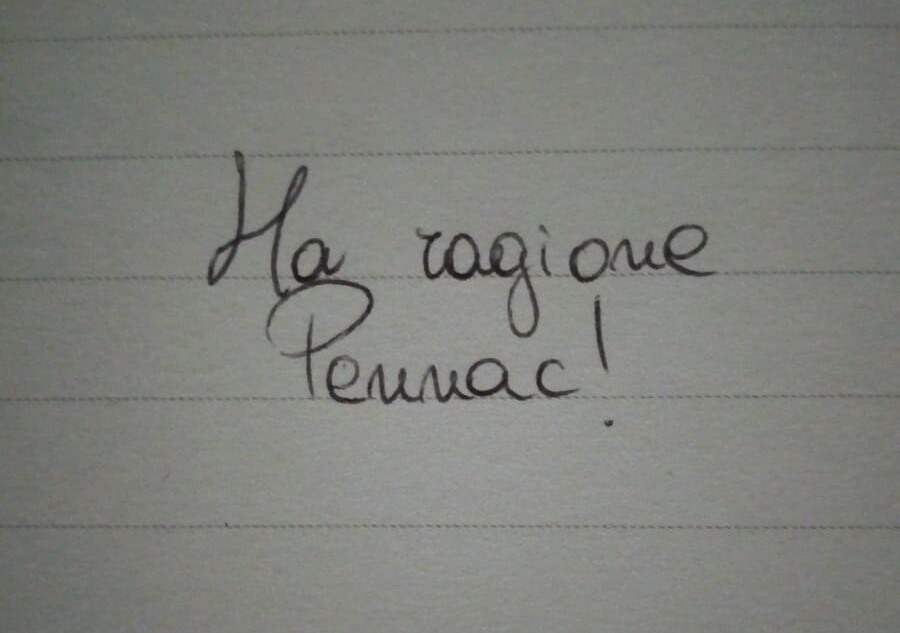 Ha ragione
Pennac!